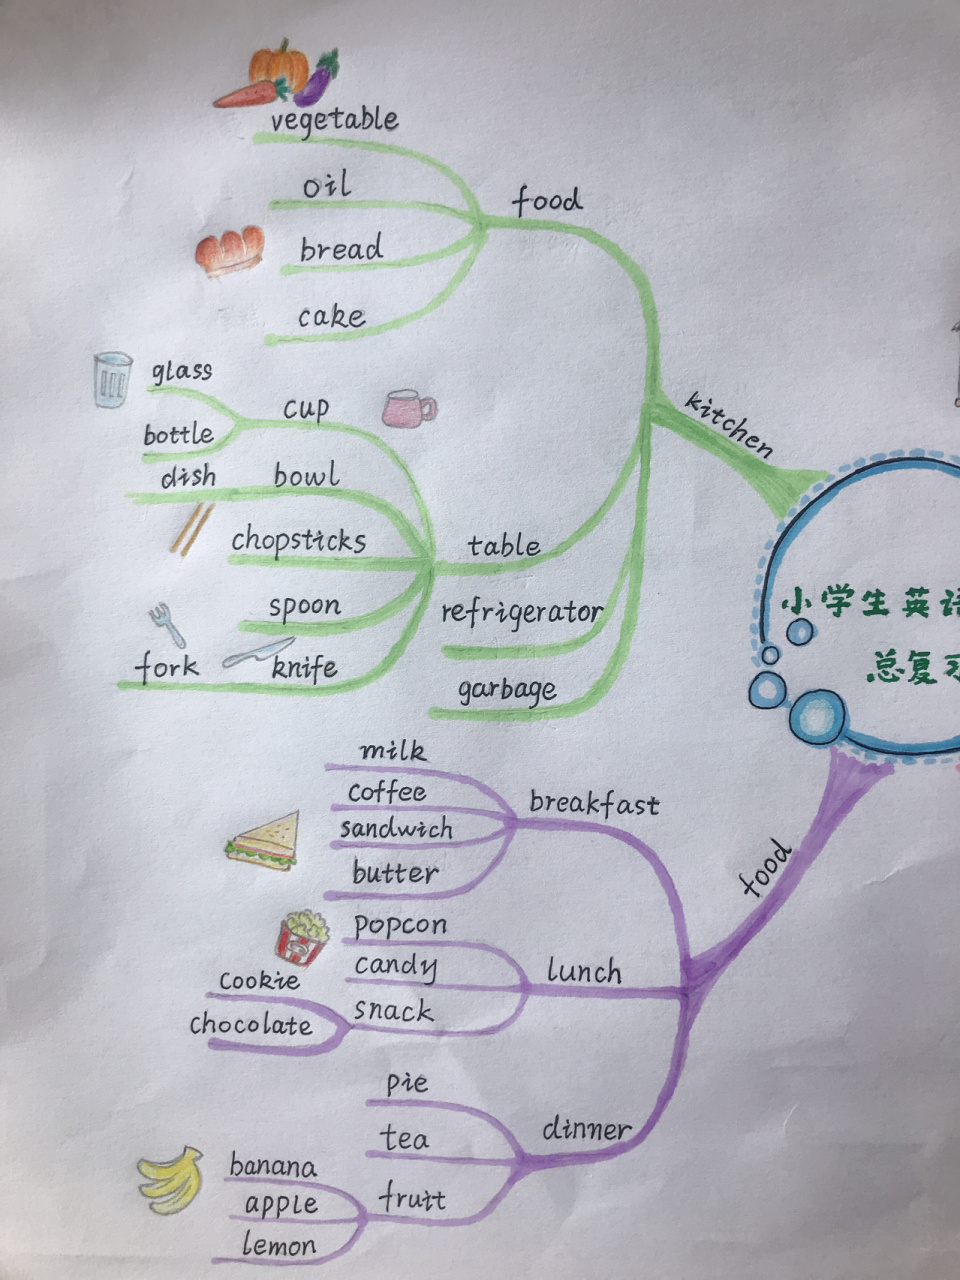 vegetable
oil
food
bread
cake
glass
cup
bottle
kitchen
dish
bowl
chopsticks
table
spoon
refrigerator
fork
knife
garbage
小学生英语
总复习
milk
coffee
breakfast
sandwich
butter
food
popcon
candy
lunch
cookie
snack
chocolate
pie
dinner
tea
banana
apple
fruit
lemon